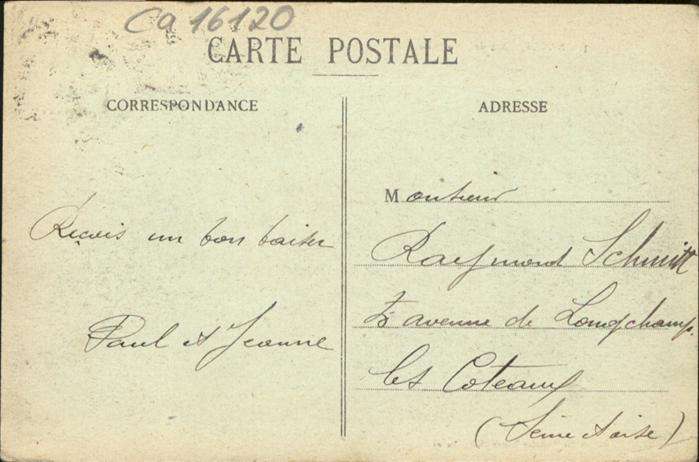 Ca 16120
CARTE POSTALE
CORRESPONDANCE
ADRESSE
Reçois un bon baiser
Paul et Jeanne
Monsieur
Raymond Schmitt
avenue de Longchamp
les Coteaux
(Seine et Oise)